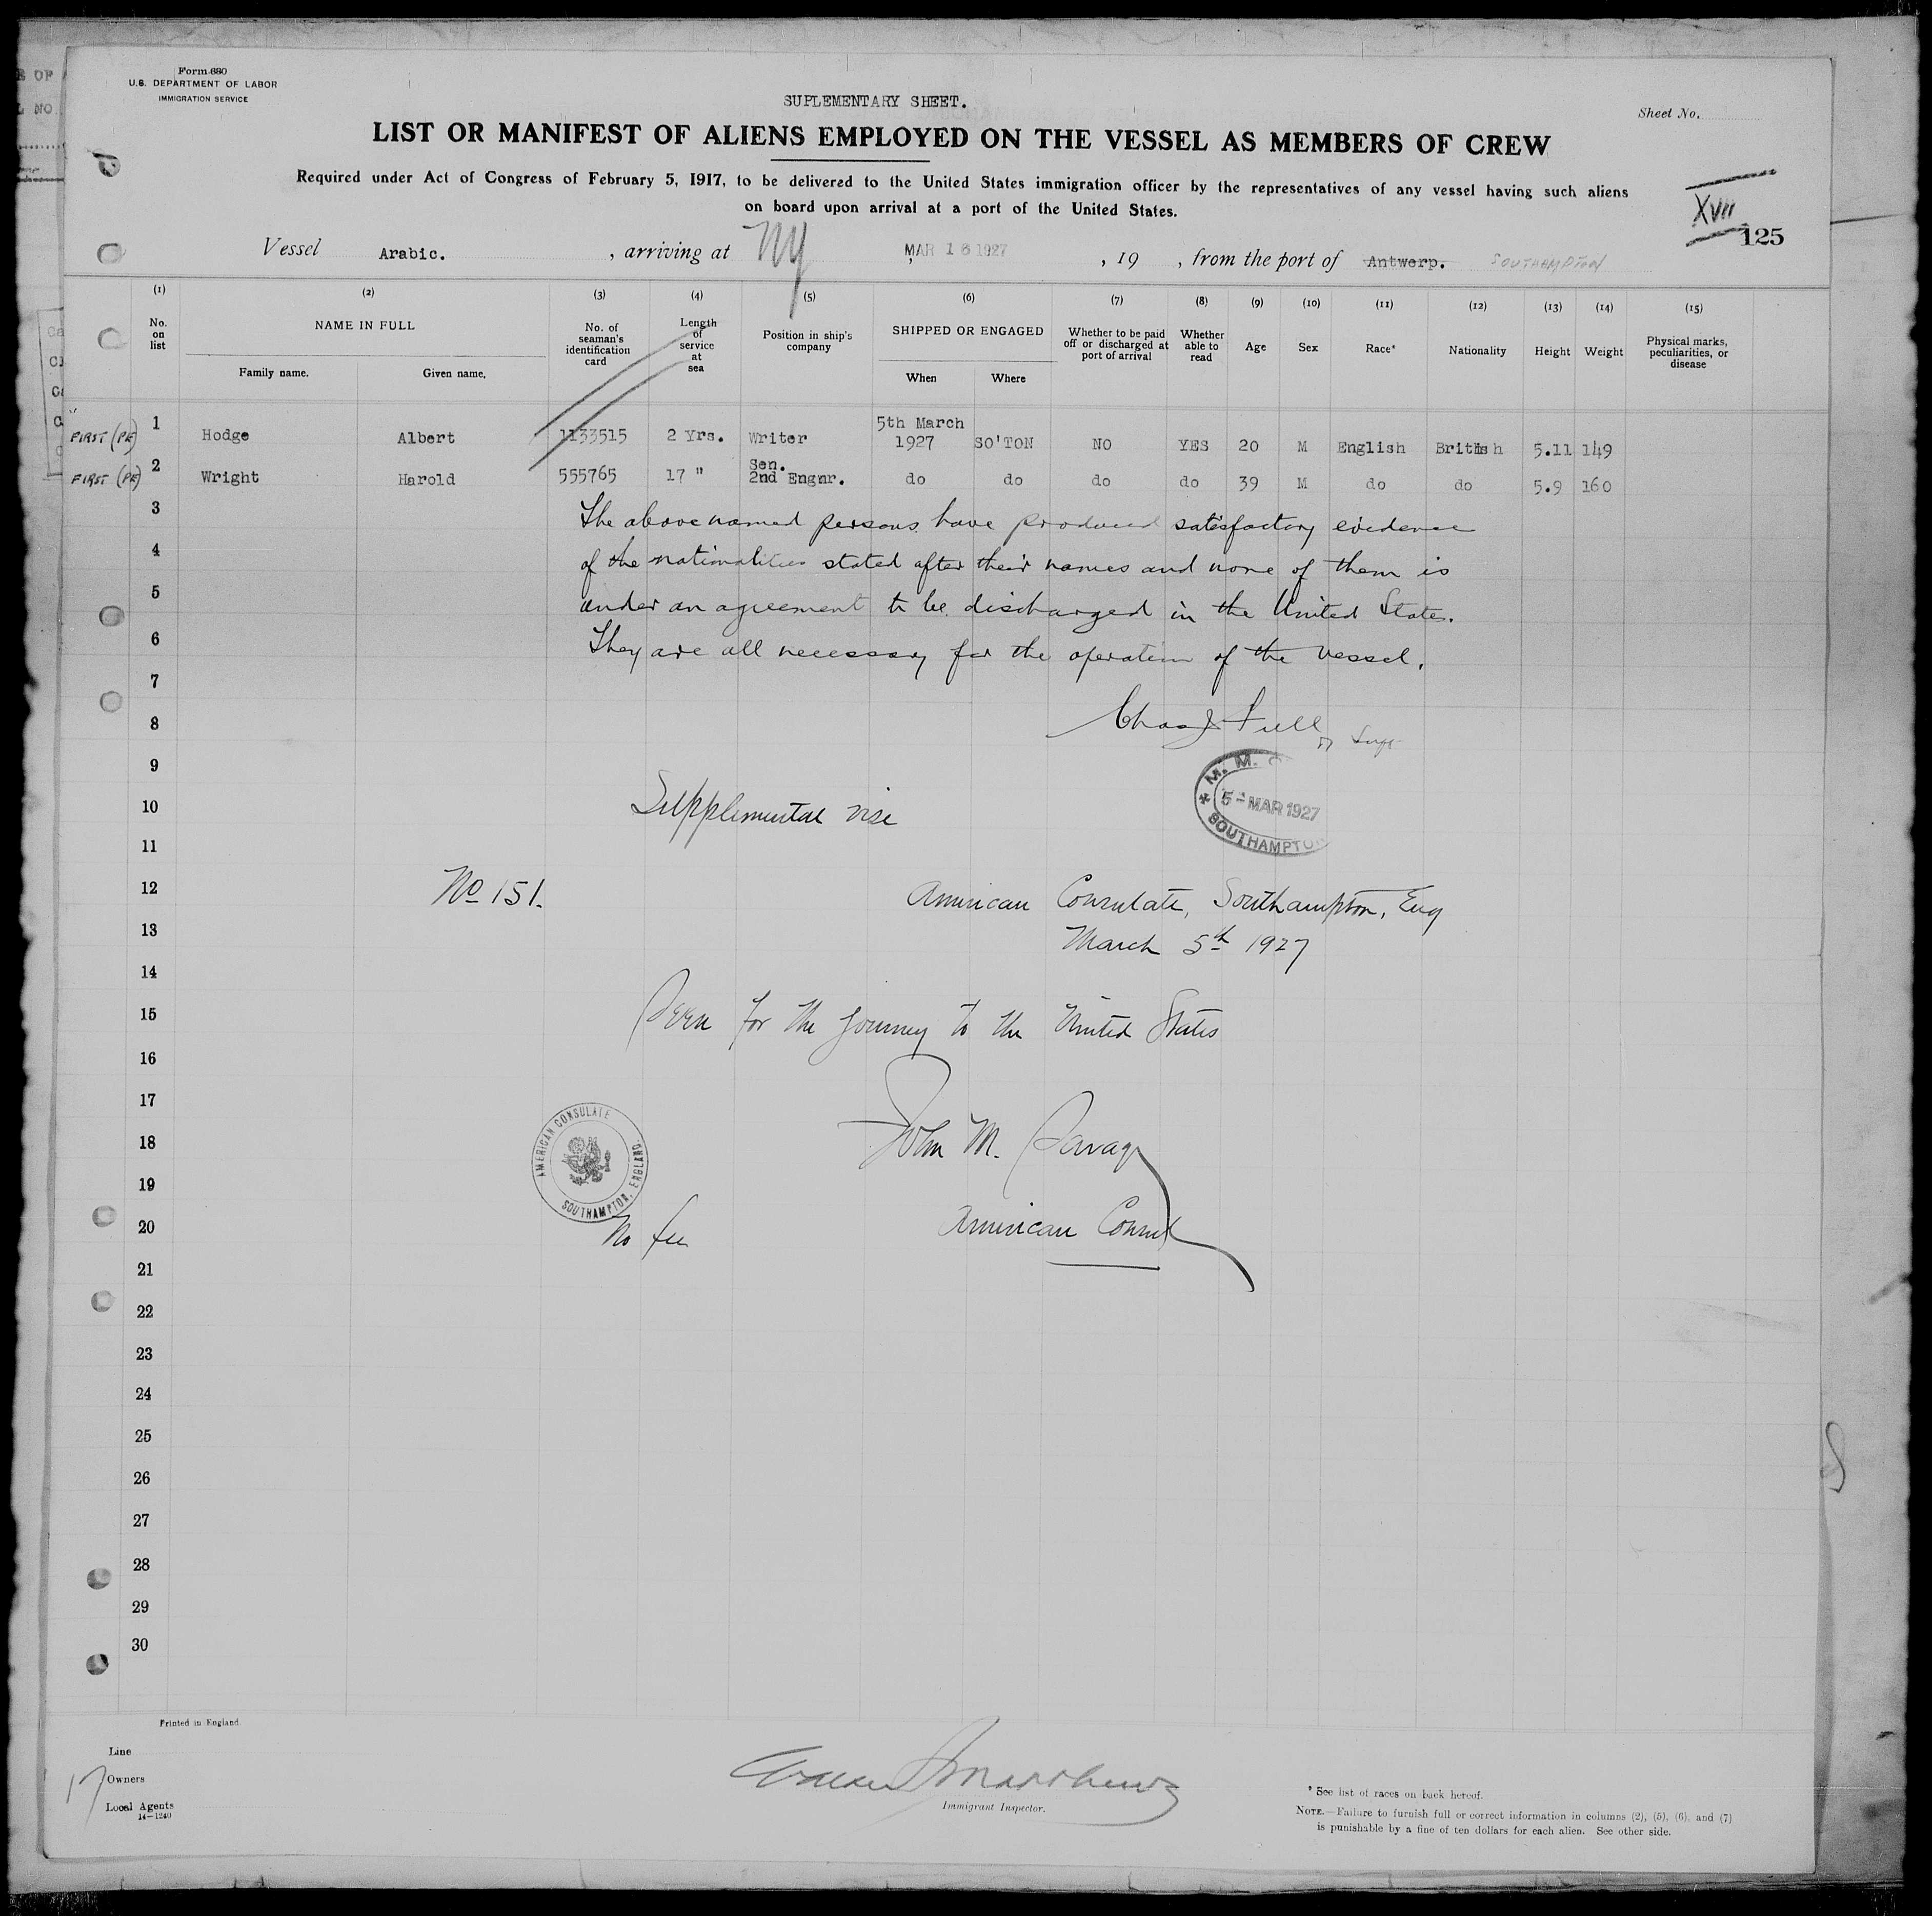 Form 680
U.S. DEPARTMENT OF LABOR
IMMIGRATION SERVICE
SUPLEMENTARY SHEET.
Sheet No.
LIST OR MANIFEST OF ALIENS EMPLOYED ON THE VESSEL AS MEMBERS OF CREW
Required under Act of Congress of February 5, 1917, to be delivered to the United States immigration officer by the representatives of any vessel having such aliens
on board upon arrival at a port of the United States.
XVII
125
Vessel Arabic. , arriving at NY MAR 16 1927 , 19 , from the port of Antwerp. SOUTHAMPTON
(1) (2) (3) (4) (5) (6) (7) (8) (9) (10) (11) (12) (13) (14) (15)
No. on list NAME IN FULL Family name. Given name. No. of seaman's identification card Length of service at sea Position in ship's company SHIPPED OR ENGAGED When Where Whether to be paid off or discharged at port of arrival Whether able to read Age Sex Race* Nationality Height Weight Physical marks, peculiarities, or disease
FIRST (PE) 1 Hodge Albert 1133515 2 Yrs. Writer 5th March 1927 SO'TON NO YES 20 M English British 5.11 149
FIRST (PE) 2 Wright Harold 555765 17 " Sen. 2nd Engnr. do do do do 39 M do do 5.9 160
3 The above named persons have produced satisfactory evidence
4 of the nationalities stated after their names and none of them is
5 under an agreement to be discharged in the United States.
6 They are all necessary for the operation of the vessel.
7
8
9
M. M.
5 - MAR 1927
SOUTHAMPTON
10 Supplemental vise
11
12 No 151. American Consulate, Southampton, Eng
13 March 5th 1927
14
15 Seen for the journey to the United States
16
17
18 John M. Savage
AMERICAN CONSULATE
SOUTHAMPTON, ENGLAND.
19
20 No fee American Consul
21
22
23
24
25
26
27
28
29
30
Printed in England
Line
17 Owners
Local Agents
14-1240
Immigrant Inspector.
* See list of races on back hereof.
NOTE.—Failure to furnish full or correct information in columns (2), (5), (6), and (7)
is punishable by a fine of ten dollars for each alien. See other side.